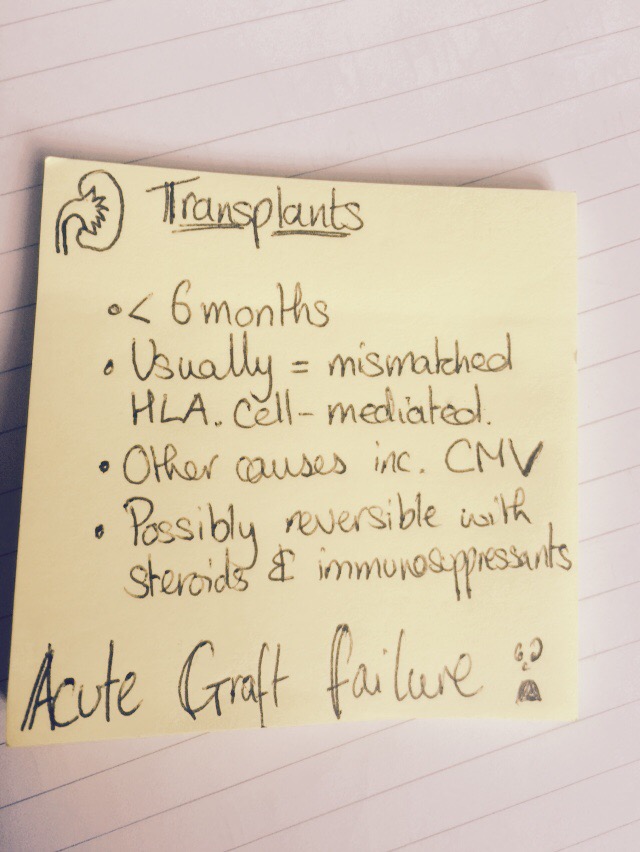 Transplants
• < 6 months
• Usually = mismatched
HLA. Cell-mediated.
• Other causes inc. CMV
• Possibly reversible with
steroids & immunosuppressants
Acute Graft failure